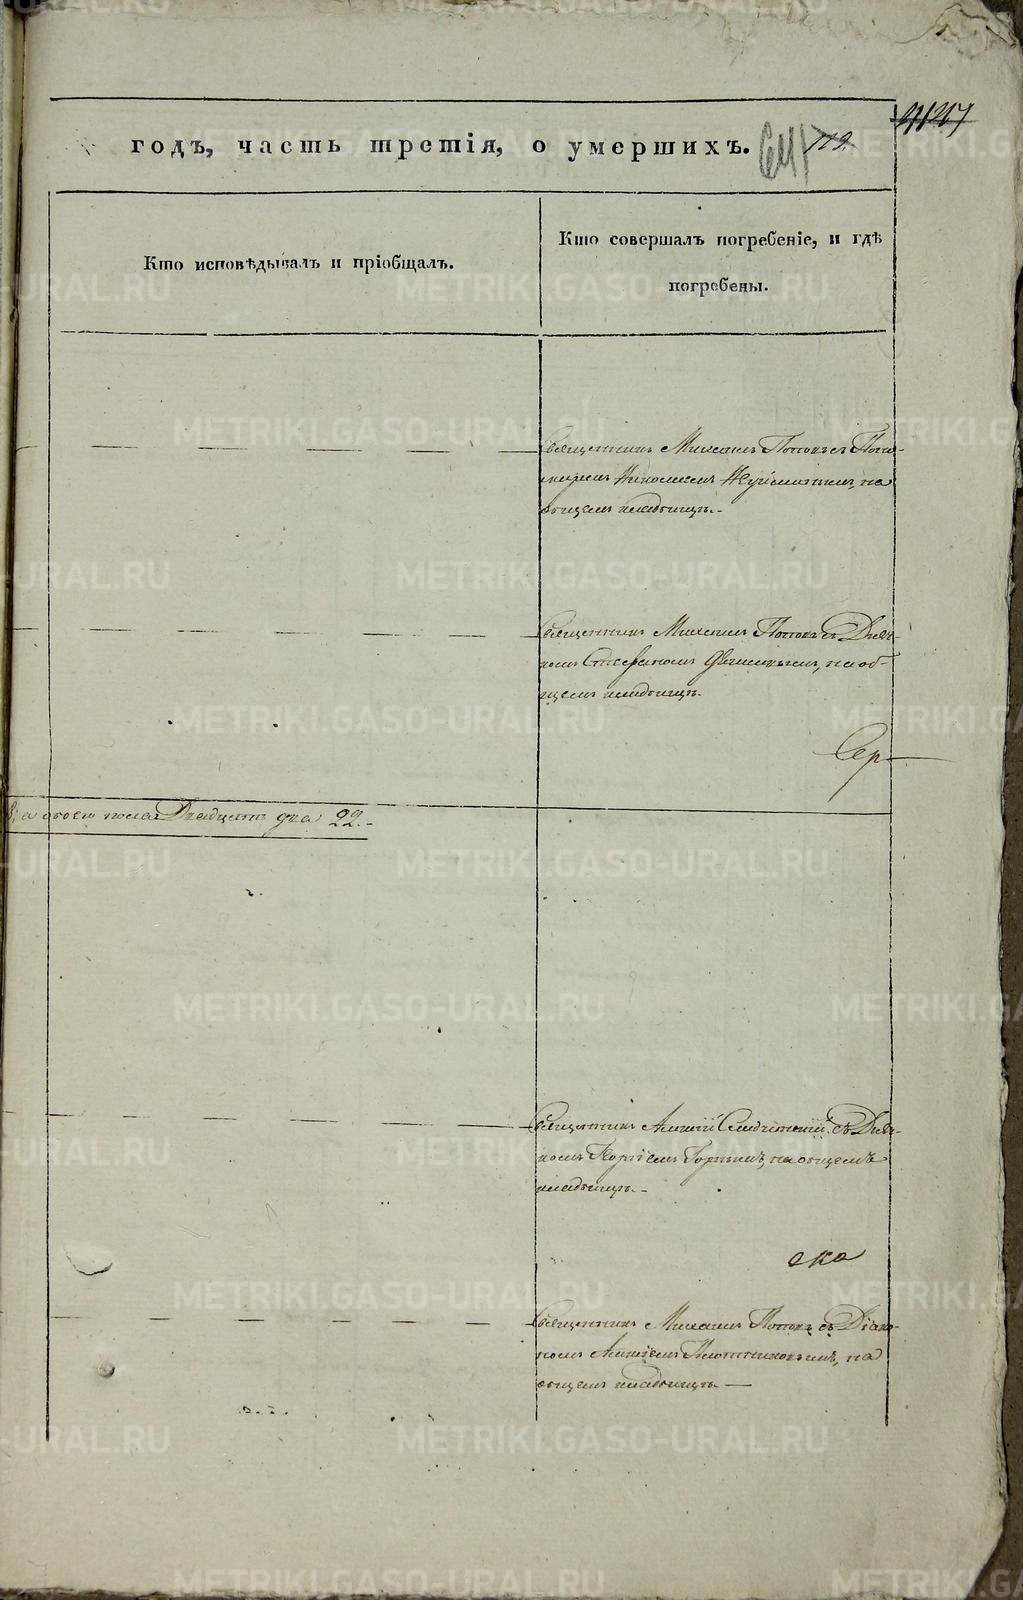 годъ, часть третія, о умершихъ.
641 119.
Кто исповѣдывалъ и пріобщалъ.
Кто совершалъ погребеніе, и гдѣ
погребены.
Священникъ Михаилъ Поповъ съ Поно-
маремъ Николаемъ на
общемъ кладбищѣ.-
Священникъ Михаилъ Поповъ съ Дьяч-
комъ Стефаномъ на об-
щемъ кладбищѣ.
Сер-
а обоего пола Двадцать два 22.-
Священникъ съ Дьяч-
комъ Георгіемъ на общемъ
кладбищѣ.-
ска
Священникъ Михаилъ Поповъ съ Діако-
номъ Плотниковымъ, на
общемъ кладбищѣ. —
METRIKI.GASO-URAL.RU